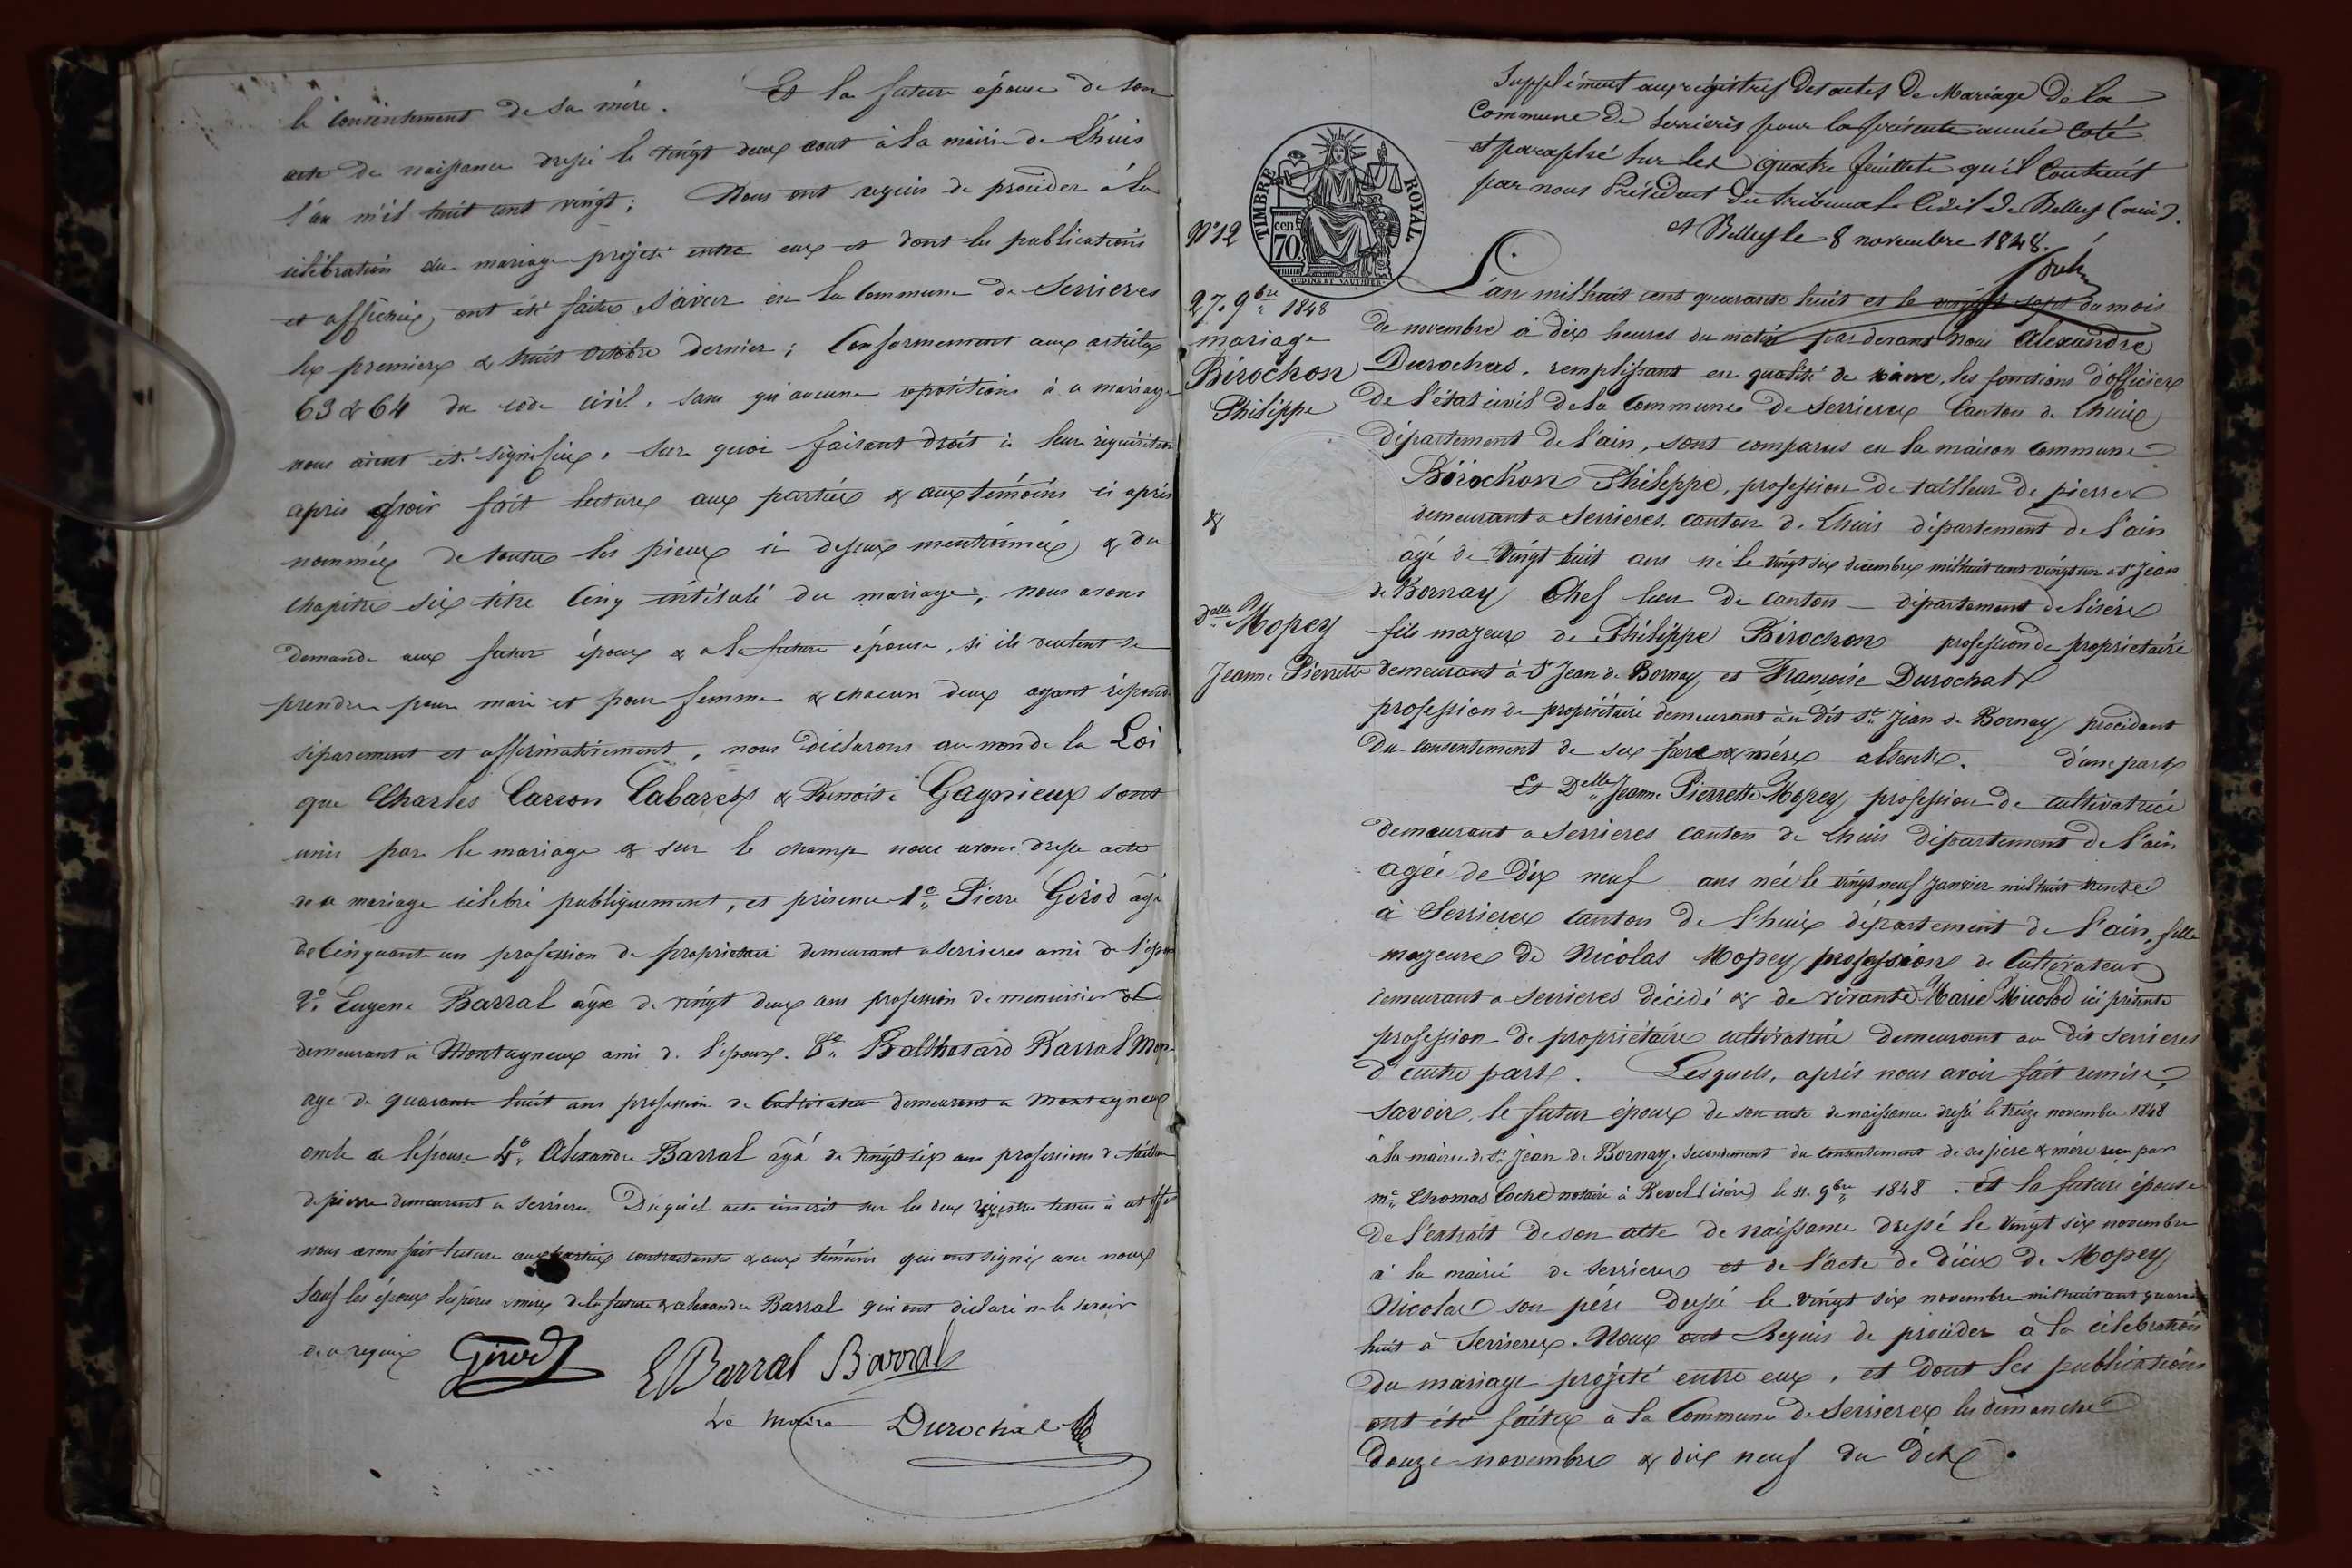 le consentement de sa mère. Et la future épouse de son
acte de naissance dressé le vingt deux aout à la mairie de Lhuis
l'an mil huit cent vingt; Nous ont requis de procéder à la
célébration du mariage projeté entre eux et dont les publications
et affiches, ont été faites savoir en la Commune de Serrieres
les premiers & huit octobre dernier; Conformement aux articles
63 & 64 du code civil, sans qu'aucune opositions à ce mariage
nous aient été signifiées, sur quoi faisant droit à leur réquisition
après avoir fait lecture aux parties & aux témoins ci après
nommées de toutes les pieces ci dessus mentionnées & du
chapitre six titre Cinq intitulé du mariage, nous avons
demandé aux futur époux & a la future épouse, si ils veulent se
prendre pour mari et pour femme & chacun deux ayant répondu
séparement et affirmativement, nous déclarons au nom de la Loi
que Charles Carron Cabaret & Benoite Gagnieux sont
unis par le mariage & sur le champ nous avons dressé acte
de ce mariage célébré publiquement, et présence 1° Pierre Girod agé
de Cinquante un profession de propriétaire demeurant a Serrieres ami de l'époux
2° Eugene Barral âgé de vingt deux ans profession de menuisier
demeurant à Montagneux ami de l'époux. 3° Balthasard Barral
age de quarante huit ans profession de Cultivateur demeurant a Montagneux
oncle de l'épouse 4° Alexandre Barral âgé de vingt six ans professions de tailleur
de pierre demeurant a Serrieres. Duquel acte inscrit sur les deux registres tenus à cet effet
nous avons fait lecture aux parties contractantes & aux témoins qui ont signés avec nous
Sauf les époux les pères & mères de la future & alexandre Barral qui ont déclaré ne le savoir
de ce requis Girod E Barral Barral
Le Maire Durochat
Supplément aux régistres des actes de Mariage de la
Commune de Serrieres pour la présente année Coté
et paraphé sur les quatre feuillets qu'il Contient
par nous Président du tribunal Civil de Belley (ain).
à Belley le 8 novembre 1848.
N° 12
TIMBRE ROYAL
cen. 70.
OUDINE ET VAUTHIER
27. 9bre 1848
mariage
Birochon
Philippe
&
Delle Mopey
Jeanne Pierrette
L'an mil huit cent quarante huit et le vingt sept du mois
de novembre à dix heures du matin par devant nous Alexandre
Durochat, remplissant en qualité de maire, les fonctions d'officier
de l'état civil de la Commune de Serrieres Canton de Lhuis
département de l'ain, sont comparus en la maison commune
Birochon Philippe, profession de tailleur de pierre
demeurant a Serrieres, canton de Lhuis département de l'ain
âgé de Vingt huit ans né le vingt six decembre mil huit cent vingt un a St Jean
de Bornay Chef lieu de Canton département de l'isère
fils majeur de Philippe Birochon profession de propriétaire
demeurant à St Jean de Bornay et Françoise Durochat
profession de propriétaire demeurant au dit St Jean de Bornay procédant
du consentement de ses père & mère absents. d'une part
Et Delle Jeanne Pierrette Mopey profession de cultivatrice
demeurant a Serrieres canton de Lhuis département de l'ain
agée de dix neuf ans née le vingt neuf Janvier mil huit trente
à Serrieres Canton de l'huis département de l'ain, fille
majeure de Nicolas Mopey profession de Cultivateur
demeurant a Serrieres décédé & de vivante Marie Micolod ici présente
profession de propriétaire cultivatrice demeurant au dit Serrieres
d'autre part. Lesquels, après nous avoir fait remise,
Savoir, le futur époux de son acte de naissance dressé le treize novembre 1848
à la mairie de St Jean de Bornay. Secondement du consentement de ses père & mère recu par
me Thomas Coche notaire à Revel (isère) le 11. 9bre 1848. Et la future épouse
de l'extrait de son acte de naissance dressé le Vingt six novembre
à la mairie de Serrieres et de l'acte de décès de Mopey
Nicolas son père dressé le vingt six novembre mil huit cent quarante
huit a Serrieres. Nous ont Requis de procéder à la célébration
du mariage projeté entre eux, et dont les publications
ont été faites à la Commune de Serrieres les dimanche
douze novembre & dix neuf du dit.